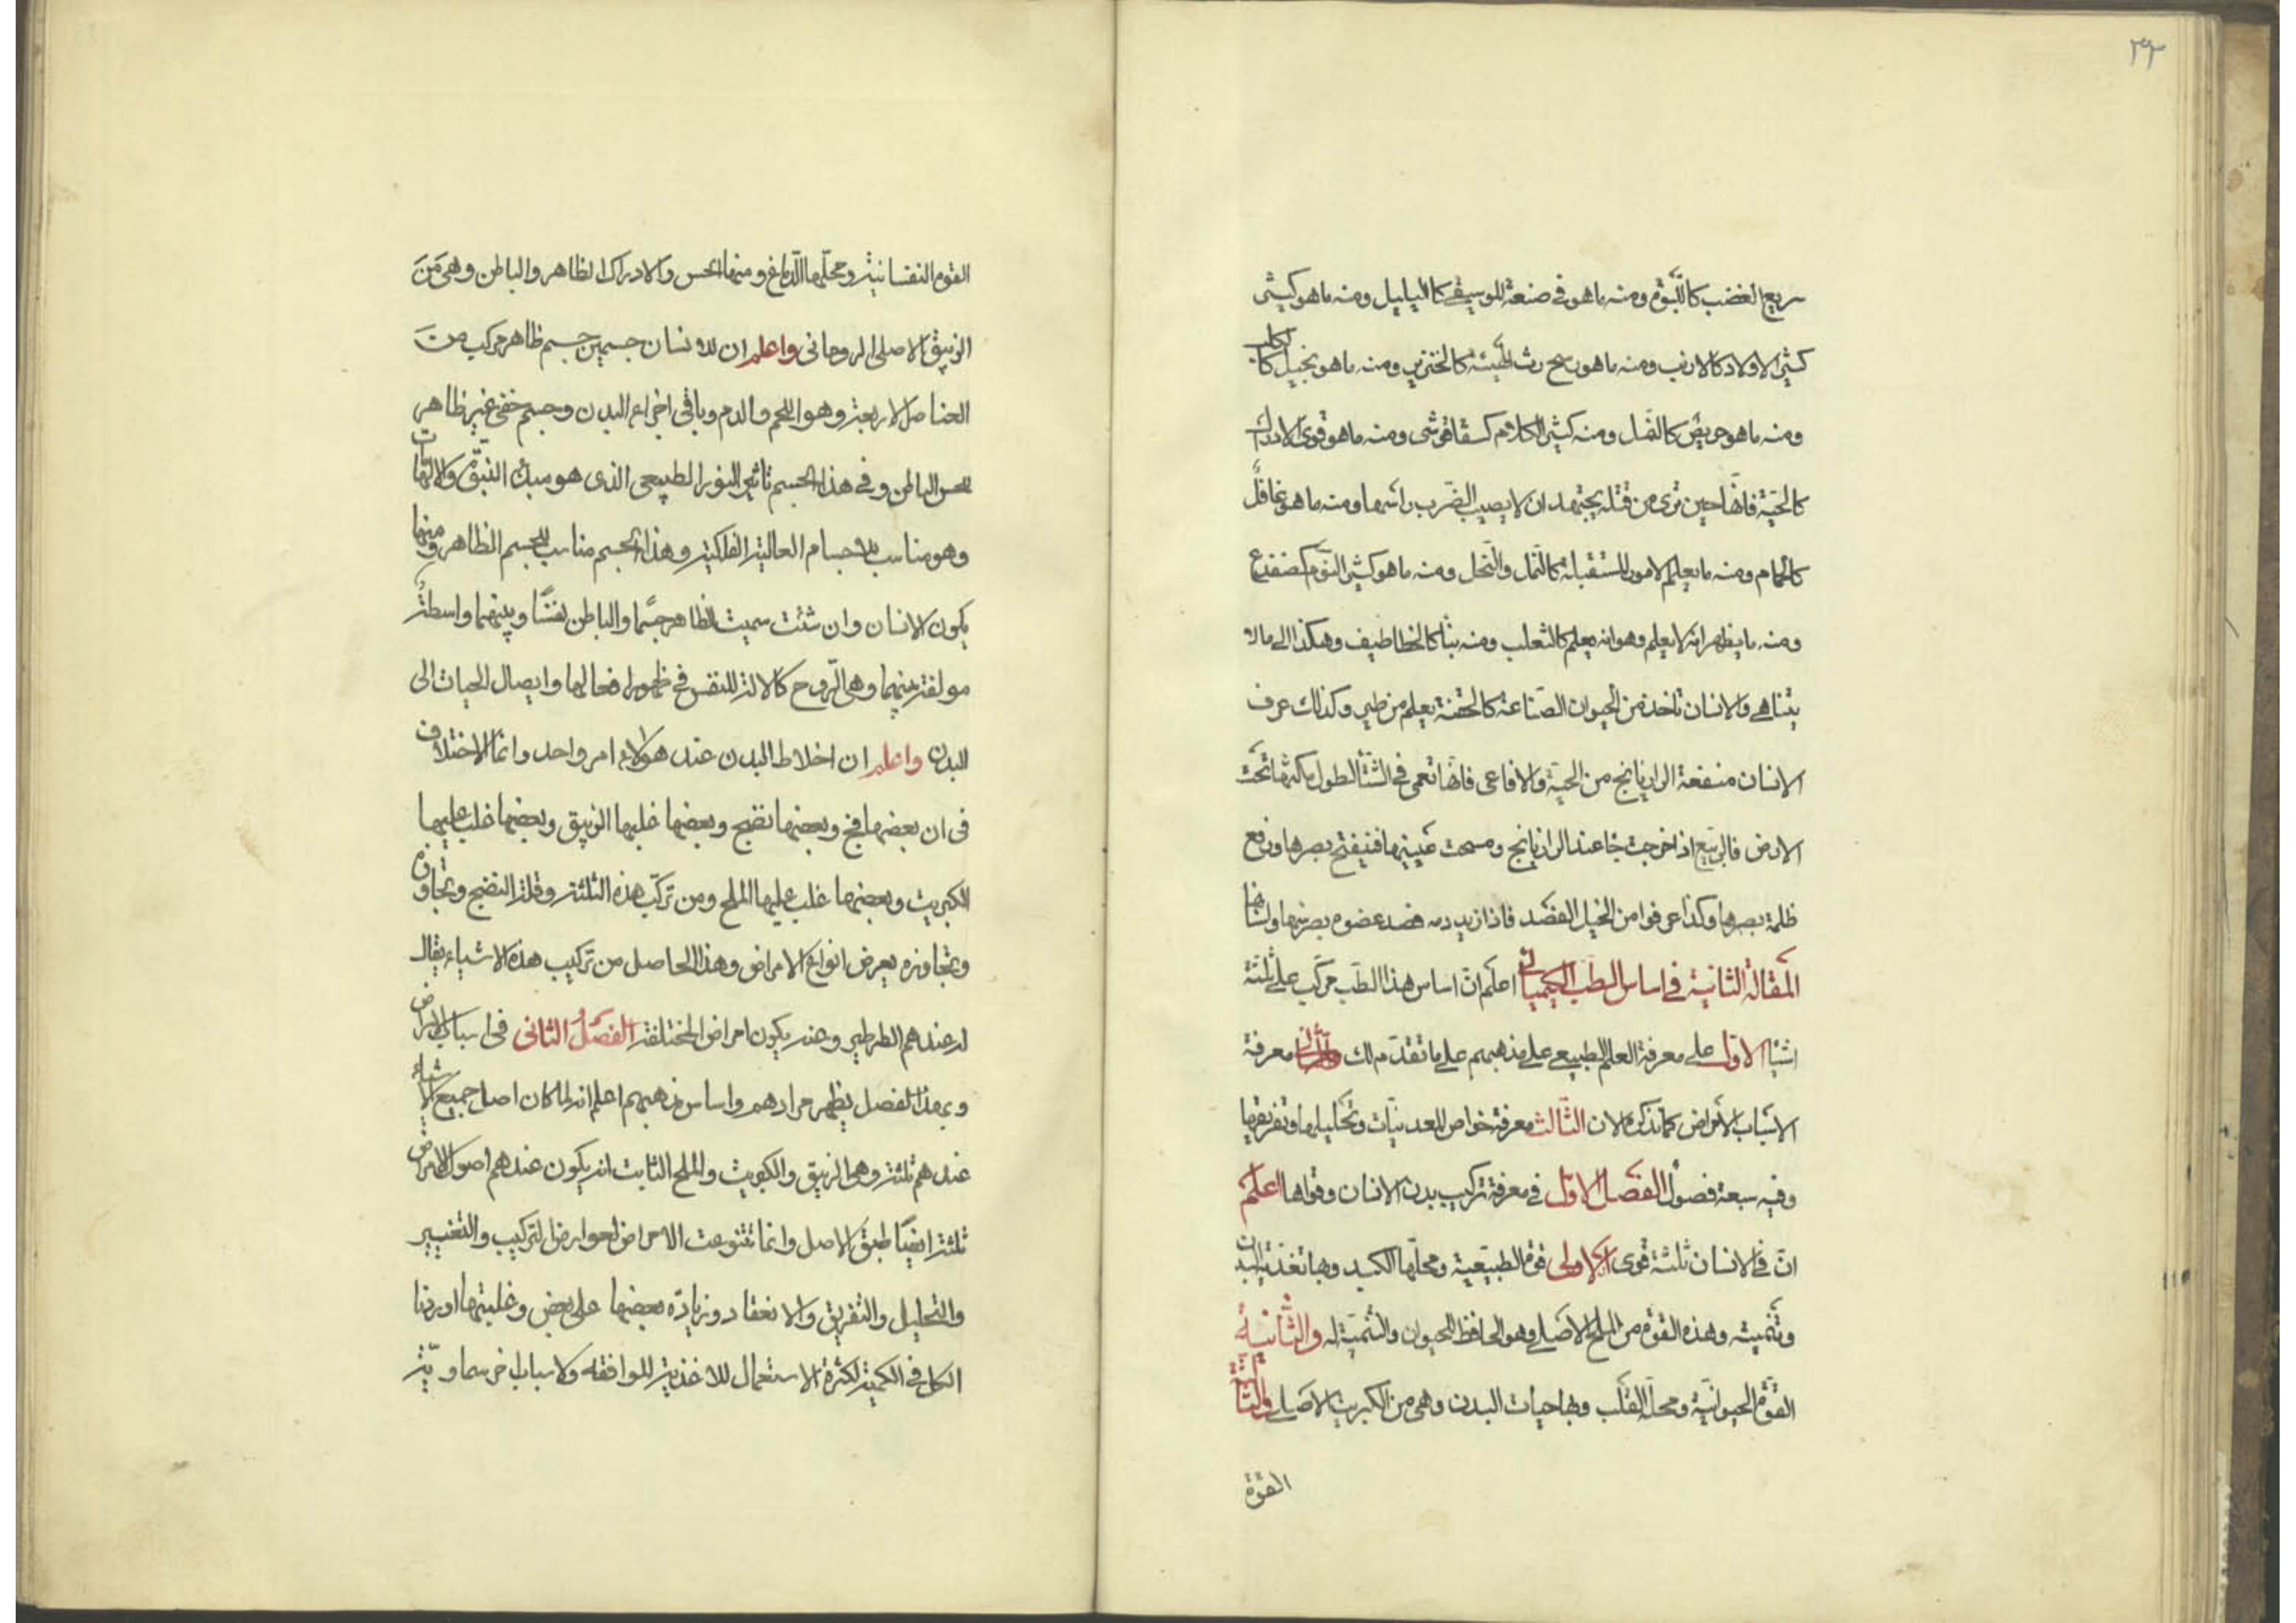 ٣٢
سريع الغضب كاللبّوة ومنه ما هو في صنعة الموسيقى كالبلابيل ومنه ما هو كثير
كثير الاولاد كالارنب ومنه ما هو وسخ رث الهيئة كالخنزير ومنه ما هو بخيل كالكلب
ومنه ما هو حريص كالنمل ومنه كثير الكلام كسقافوشى ومنه ما هو قوى الادراك
كالحيّة فانّها حين ترى من قتله يجتهد ان لا يصيب الضرب راسها ومنه ما هو غافل
كالحمام ومنه ما يعلم الامور المستقبلة كالنّمل والنّحل ومنه ما هو كثير النّوم كضفدع
ومنه ما يظهر انه لا يعلم وهو انه يعلم كالثعلب ومنه بنّا كالخطاطيف وهكذا الى ما لا
يتناهى والانسان تأخذ من الحيوان الصّناعة كالحقنة يعلم من طير وكذلك عرف
الانسان منفعة الرازيانج من الحيّة والافاعى فانّها تعمى فى الشتاء لطول مكثها تحت
الارض فالربيع اذا خرجت جاء عند الرازيانج ومسحت عينيها فينفتح بصرها ورفع
ظلمة بصرها وكذا عرفوا من الخيل الفصد فاذا زيد دمه فصد عضوه بصرنها ولسانها
المقالة الثانية فى اساس الطب الكيميائى اعلم انّ اساس هذا الطب مركّب على ثلثة
اشيا الاوّل على معرفة العلم الطبيعى على مذهبهم على ما تقدّم لك والثانى معرفة
الاسباب الامراض كما نذكره الان الثّالث معرفة خواص المعدنيّات وتحليلها وتفريقها
وفيه سبعة فصول الفصل الاوّل فى معرفة تركيب بدن الانسان وقواها اعلم
انّ فى الانسان ثلثة قوى الاولى قوة الطبيعية ومحلّها الكبد وبها تغذية البدن
وتنميته وهذه القوّة من الملح الاصلى وهو الحافظ الحيوان والتنمية له والثّانية
القوّة الحيوانيّة ومحلّه القلب وبها حيات البدن وهى من الكبريت الاصلى والثالثة
القوّة
القوة النفسانية ومحلّها الدّماغ ومنها الحس والادراك الظاهر والباطن وهى من
الزيبق الاصلى الروحانى واعلم ان للانسان جسمين جسم ظاهر مركب من
العناصر الاربعة وهو اللحم والدم وباقى اجزاء البدن وجسم خفى غير ظاهر
للحس الباطن وفى هذا الجسم تاثير النور الطبيعى الذى هو مبدأ النبوّة والالهات
وهو مناسب للاجسام العالية الفلكية وهذا الجسم مناسب للجسم الظاهر ومنهما
يكون الانسان وان شئت سميت الظاهر جسمًا والباطن نفسًا وبينهما واسطة
مولفة بينهما وهى الرّوح كالالة للنفس فى ظهور افعالها وايصال الحيات الى
البدن واعلم ان اخلاط البدن عند هؤلاء امر واحد وانما الاختلاف
فى ان بعضها فج وبعضها نضج وبعضها غلبها الزيبق وبعضها غلب عليها
الكبريت وبعضها غلب عليها الملح ومن تركّب هذه الثلثة وقلة النضج وتجاوزه
وتجاوزه يعرض انواع الامراض وهذا الحاصل من تركيب هذه الاشياء يقال
له عندهم الطرطير وعنه يكون امراض المختلفة الفصل الثانى فى اسباب الامراض
وبهذا الفصل يظهر مرادهم واساس مذهبهم اعلم انه لما كان اصل جميع الاشياء
عندهم ثلثة وهى الزيبق والكبريت والملح الثابت انه يكون عندهم اصول الامراض
ثلثة ايضًا طبق الاصل وانما تتنوعت الامراض لعوارض التركيب والتغيير
والتحليل والتفريق والانعقاد وزيادة بعضها على بعض وغلبتها اوردنا
الكل فى الكمية لكثرة الاستعمال للاغذية الموافقه ولاسباب اخر سماوية